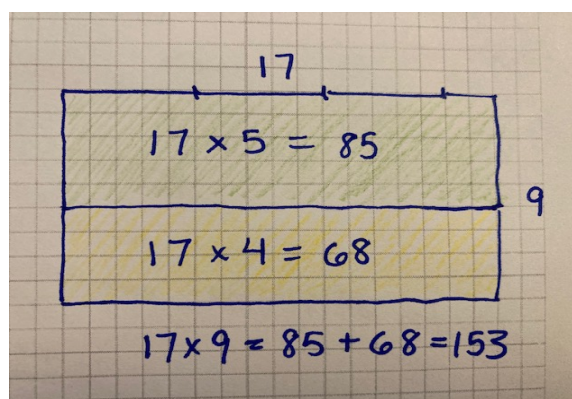 17
17 × 5 = 85
9
17 × 4 = 68
17 × 9 = 85 + 68 = 153